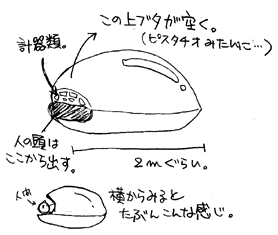 この上ブタが空く。
(ピスタチオみたいに…)
計器類。
人の頭は
ここから出す。
2mぐらい。
人間
横からみると
たぶんこんな感じ。